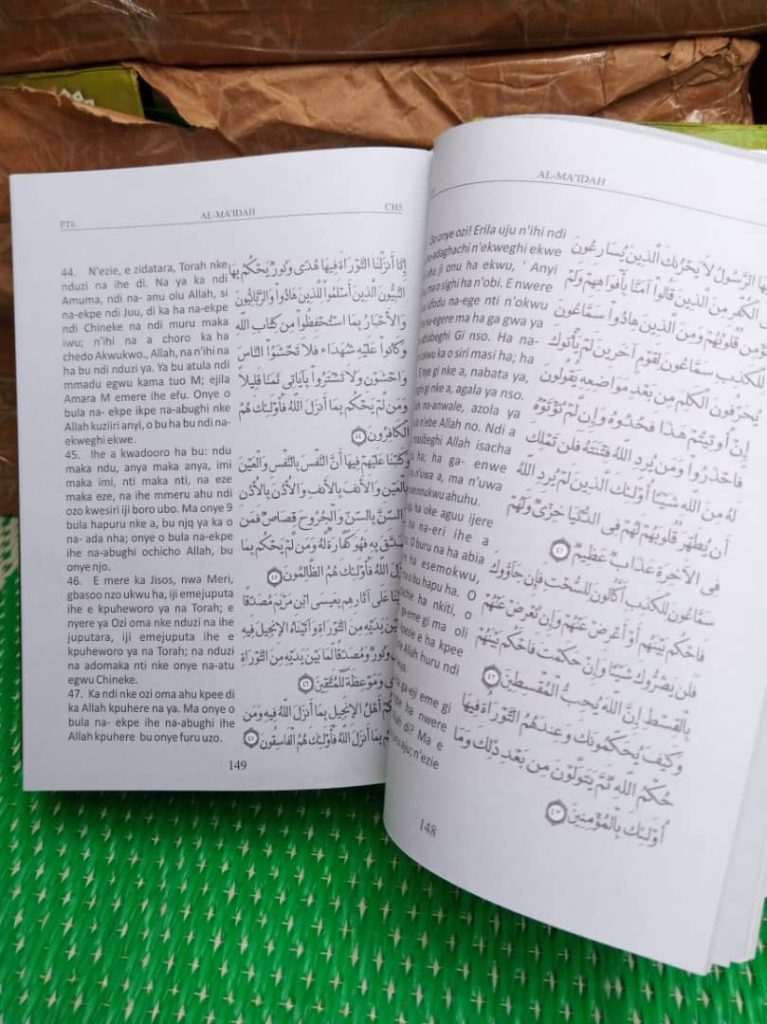 AL-MA'IDAH
Oo onye ozi! Erila uju n'ihi ndi
-adaghachi n'ekweghi ekwe
ahu ji onu ha ekwu, ' Anyi
na o sighi ha n'obi. E nwere
ufodu na-ege nti n'okwu
na-egere ma ha ga gwa ya
abubeghi Gi nso. Ha na-
okwu ka o siri masi ha; ha
E nye gi nke a, nabata ya,
ghi gi nke a, agala ya nso.
ah na-anwale, azola ya
a n'ebe Allah no. Ndi a
masibeghi Allah isacha
ha; ha ga- enwe
n'uwa a, ma n'uwa
mmukwu ahuhu.
lu oke aguu ijere
na na-eri ihe a
O buru na ha abia
re ha esemokwu,
ma o bu hapu ha. O
ha nkiti, o
ga-eme gi ma oli
kpezie e ha kpee
Allah huru ndi
ga-eji eme gi
ha nwere
di? Ma e
n'ezie
يهَا الرَّسُولُ لَا يَحْزُنكَ الَّذِينَ يُسَارِعُونَ
ى الْكُفْرِ مِنَ الَّذِينَ قَالُوا آمَنَّا بِأَفْوَاهِهِمْ وَلَمْ
ؤْمِن قُلُوبُهُمْ وَمِنَ الَّذِينَ هَادُوا سَمَّاعُونَ
لِلْكَذِبِ سَمَّاعُونَ لِقَوْمٍ آخَرِينَ لَمْ يَأْتُوكَ
يُحَرِّفُونَ الْكَلِمَ مِن بَعْدِ مَوَاضِعِهِ يَقُولُونَ
إِنْ أُوتِيتُمْ هَذَا فَخُذُوهُ وَإِن لَّمْ تُؤْتَوْهُ
فَاحْذَرُوا وَمَن يُرِدِ اللَّهُ فِتْنَتَهُ فَلَن تَمْلِكَ
لَهُ مِنَ اللَّهِ شَيْئًا أُولَئِكَ الَّذِينَ لَمْ يُرِدِ اللَّهُ
أَن يُطَهِّرَ قُلُوبَهُمْ لَهُمْ فِي الدُّنْيَا خِزْيٌ وَلَهُمْ
فِي الْآخِرَةِ عَذَابٌ عَظِيمٌ ٤١
سَمَّاعُونَ لِلْكَذِبِ أَكَّالُونَ لِلسُّحْتِ فَإِن جَاءُوكَ
فَاحْكُم بَيْنَهُمْ أَوْ أَعْرِضْ عَنْهُمْ وَإِن تُعْرِضْ عَنْهُمْ
فَلَن يَضُرُّوكَ شَيْئًا وَإِنْ حَكَمْتَ فَاحْكُم بَيْنَهُم
بِالْقِسْطِ إِنَّ اللَّهَ يُحِبُّ الْمُقْسِطِينَ ٤٢
وَكَيْفَ يُحَكِّمُونَكَ وَعِندَهُمُ التَّوْرَاةُ فِيهَا
حُكْمُ اللَّهِ ثُمَّ يَتَوَلَّوْنَ مِن بَعْدِ ذَلِكَ وَمَا
أُولَئِكَ بِالْمُؤْمِنِينَ ٤٣
148
PT6 AL-MA'IDAH CH5
44. N'ezie, e zidatara, Torah nke
nduzi na ihe di. Na ya ka ndi
Amuma, ndi na- anu olu Allah, si
na-ekpe ndi Juu, di ka ha na-ekpe
ndi Chineke na ndi muru maka
iwu; n'ihi na a choro ka ha
chedo Akwukwo., Allah, na n'ihi na
ha bu ndi nduzi ya. Ya bu atula ndi
mmadu egwu kama tuo M; ejila
Amara M emere ihe efu. Onye o
bula na- ekpe ikpe na-abughi nke
Allah kuziiri anyi, o bu ha bu ndi na-
ekweghi ekwe.
45. Ihe a kwadooro ha bu: ndu
maka ndu, anya maka anya, imi
maka imi, nti maka nti, na eze
maka eze, na ihe mmeru ahu ndi
ozo kwesiri iji boro ubo. Ma onye 9
bula hapuru nke a, bu njq ya ka o
na- ada nha; onye o bula na-ekpe
ihe na-abughi ochicho Allah, bu
onye njo.
46. E mere ka Jisos, nwa Meri,
gbasoo nzo ukwu ha, iji emejuputa
ihe e kpuheworo ya na Torah; e
nyere ya Ozi oma nke nduzi na ihe
juputara, iji emejuputa ihe e
kpuheworo ya na Torah; na nduzi
na adomaka nti nke onye na-atu
egwu Chineke.
47. Ka ndi nke ozi oma ahu kpee di
ka Allah kpuhere na ya. Ma onye o
bula na- ekpe ihe na-abughi ihe
Allah kpuhere bu onye furu uzo.
إِنَّا أَنزَلْنَا التَّوْرَاةَ فِيهَا هُدًى وَنُورٌ يَحْكُمُ بِهَا
النَّبِيُّونَ الَّذِينَ أَسْلَمُوا لِلَّذِينَ هَادُوا وَالرَّبَّانِيُّونَ
وَالْأَحْبَارُ بِمَا اسْتُحْفِظُوا مِن كِتَابِ اللَّهِ
وَكَانُوا عَلَيْهِ شُهَدَاءَ فَلَا تَخْشَوُا النَّاسَ
وَاخْشَوْنِ وَلَا تَشْتَرُوا بِآيَاتِي ثَمَنًا قَلِيلًا
وَمَن لَّمْ يَحْكُم بِمَا أَنزَلَ اللَّهُ فَأُولَئِكَ هُمُ
الْكَافِرُونَ ٤٤
وَكَتَبْنَا عَلَيْهِمْ فِيهَا أَنَّ النَّفْسَ بِالنَّفْسِ وَالْعَيْنَ
بِالْعَيْنِ وَالْأَنفَ بِالْأَنفِ وَالْأُذُنَ بِالْأُذُنِ
السِّنَّ بِالسِّنِّ وَالْجُرُوحَ قِصَاصٌ فَمَن
صَدَّقَ بِهِ فَهُوَ كَفَّارَةٌ لَّهُ وَمَن لَّمْ يَحْكُم بِمَا
زَلَ اللَّهُ فَأُولَئِكَ هُمُ الظَّالِمُونَ ٤٥
نَا عَلَى آثَارِهِم بِعِيسَى ابْنِ مَرْيَمَ مُصَدِّقًا
بَيْنَ يَدَيْهِ مِنَ التَّوْرَاةِ وَآتَيْنَاهُ الْإِنجِيلَ فِيهِ
وَنُورٌ وَمُصَدِّقًا لِّمَا بَيْنَ يَدَيْهِ مِنَ التَّوْرَاةِ
ى وَمَوْعِظَةً لِّلْمُتَّقِينَ ٤٦
أَهْلُ الْإِنجِيلِ بِمَا أَنزَلَ اللَّهُ فِيهِ وَمَن
م بِمَا أَنزَلَ اللَّهُ فَأُولَئِكَ هُمُ الْفَاسِقُونَ ٤٧
149